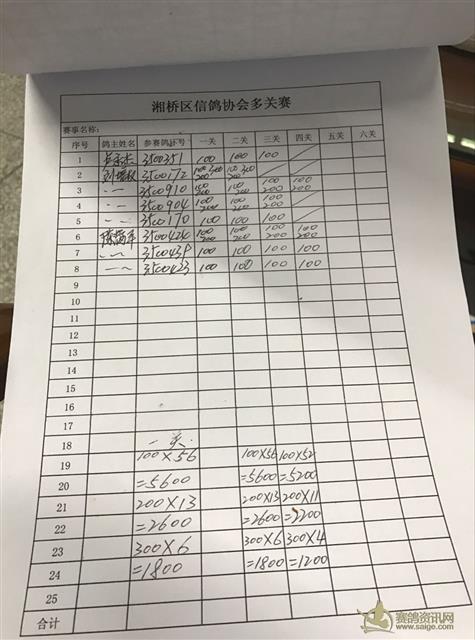 湘桥区信鸽协会多关赛
赛事名称:
序号 鸽主姓名 参赛鸽环号 一关 二关 三关 四关 五关 六关
1 3500351 100 100 100
2 3500172 100 300 200 100 300 200
3 〃 3500910 100 200 100 100 200 100 200
4 〃 3500904 100 200 100 100 200
5 〃 3500170 100 100 100
6 350042 100 200 100 200 100 200 100 200
7 〃 350043 100 100 100 100
8 〃 3500423 100 100 100 100
9
10
11
12
13
14
15
16
17
18 一关
19 100×56 100×56 100×52
20 =5600 =5600 =5200
21 200×13 200×13 200×11
22 =2600 =2600 =2200
23 300×6 300×6 300×4
24 =1800 =1800 =1200
25
合计
赛鸽资讯网
www.saige.com